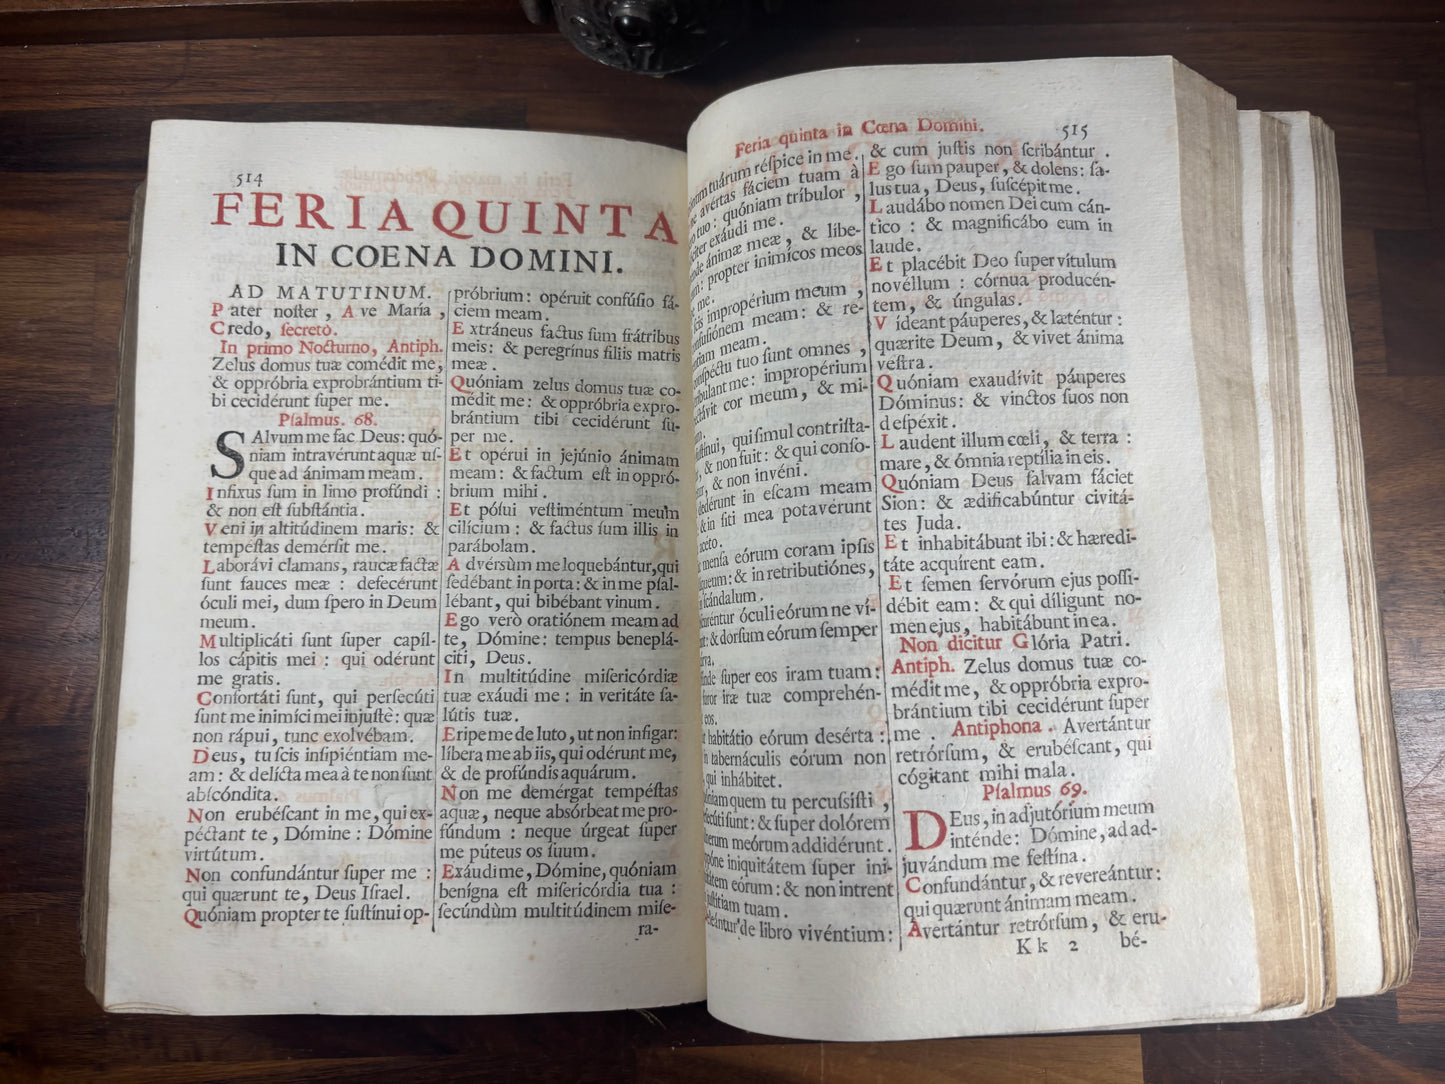 514
FERIA QUINTA
IN COENA DOMINI.
AD MATUTINUM.
Pater noſter, Ave María,
Credo, ſecretò.
In primo Nocturno, Antiph.
Zelus domus tuæ comédit me,
& oppróbria exprobrántium ti-
bi cecidérunt ſuper me.
Pſalmus. 68.
SAlvum me fac Deus: quó-
niam intravérunt aquæ uſ-
que ad ánimam meam.
Infixus ſum in limo profúndi :
& non eſt ſubſtántia.
Veni in altitúdinem maris: &
tempéſtas demérſit me.
Laborávi clamans, raucæ factæ
ſunt fauces meæ : defecérunt
óculi mei, dum ſpero in Deum
meum.
Multiplicáti ſunt ſuper capíl-
los cápitis mei : qui odérunt
me gratis.
Confortáti ſunt, qui perſecúti
ſunt me inimíci mei injuſtè: quæ
non rápui, tunc exolvébam.
Deus, tu ſcis inſipiéntiam me-
am : & delícta mea à te non ſunt
abſcóndita.
Non erubéſcant in me, qui ex-
péctant te, Dómine : Dómine
virtútum.
Non confundántur ſuper me :
qui quærunt te, Deus Iſrael.
Quóniam propter te ſuſtínui op-
próbrium: opéruit confúſio fá-
ciem meam.
Extráneus factus ſum frátribus
meis: & peregrínus fíliis matris
meæ .
Quóniam zelus domus tuæ co-
médit me: & oppróbria expro-
brántium tibi cecidérunt ſu-
per me.
Et opérui in jejúnio ánimam
meam : & factum eſt in oppró-
brium mihi.
Et póſui veſtiméntum meum
cilícium : & factus ſum illis in
parábolam.
Advérsùm me loquebántur, qui
ſedébant in porta: & in me pſal-
lébant, qui bibébant vinum.
Ego verò oratiónem meam ad
te, Dómine: tempus beneplá-
citi, Deus.
In multitúdine miſericórdiæ
tuæ exáudi me : in veritáte ſa-
lútis tuæ.
Eripe me de luto, ut non infigar:
líbera me ab iis, qui odérunt me,
& de profúndis aquárum.
Non me demérgat tempéſtas
aquæ, neque abſórbeat me pro-
fúndum : neque úrgeat ſuper
me púteus os ſuum.
Exáudi me, Dómine, quóniam
benígna eſt miſericórdia tua :
ſecúndùm multitúdinem miſe-
ra-
Feria quinta in Cœna Domini.
515
tuárum réſpice in me.
avértas fáciem tuam à
tuo : quóniam tríbulor ,
exáudi me.
ánimæ meæ, & líbe-
: propter inimícos meos
me.
impropérium meum ,
meam : & re-
meam.
tuo ſunt omnes ,
me: impropérium
cor meum, & mi-
qui ſimul contriſta-
& non fuit: & qui conſo-
& non invéni.
in eſcam meam
& in ſiti mea potavérunt
menſa eórum coram ipſis
& in retributiónes,
ſcándalum.
óculi eórum ne ví-
& dorſum eórum ſemper
ſuper eos iram tuam:
iræ tuæ comprehén-
eos.
habitátio eórum desérta :
tabernáculis eórum non
qui inhábitet.
quem tu percuſsíſti ,
ſunt: & ſuper dolórem
meórum addidérunt.
iniquitátem ſuper ini-
eórum: & non intrent
tuam.
de libro vivéntium:
& cum juſtis non ſcribántur .
Ego ſum pauper, & dolens: ſa-
lus tua, Deus, ſuſcépit me.
Laudábo nomen Dei cum cán-
tico : & magnificábo eum in
laude.
Et placébit Deo ſuper vítulum
novéllum : córnua producén-
tem, & úngulas.
Vídeant páuperes, & læténtur :
quærite Deum, & vivet ánima
véſtra.
Quóniam exaudívit páuperes
Dóminus: & vinctos ſuos non
deſpéxit.
Laudent illum cœli, & terra :
mare, & ómnia reptília in eis.
Quóniam Deus ſalvam fáciet
Sion: & ædificabúntur civitá-
tes Juda.
Et inhabitábunt ibi: & hæredi-
táte acquírent eam.
Et ſemen ſervórum ejus poſſi-
débit eam: & qui díligunt no-
men ejus, habitábunt in ea.
Non dicitur Glória Patri.
Antiph. Zelus domus tuæ co-
médit me, & oppróbria expro-
brántium tibi cecidérunt ſuper
me . Antiphona . Avertántur
retrórſum, & erubéſcant, qui
cógitant mihi mala.
Pſalmus 69.
DEus, in adjutórium meum
inténde: Dómine, ad ad-
juvándum me feſtína.
Confundántur, & revereántur:
qui quærunt ánimam meam.
Avertántur retrórſum, & eru-
Kk 2 bé-